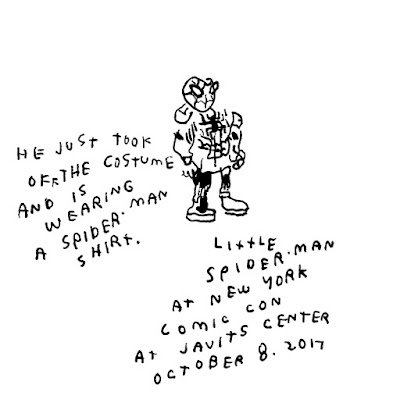 HE JUST TOOK
OFF THE COSTUME
AND IS
WEARING
A SPIDER-MAN
SHIRT.
LITTLE
SPIDER-MAN
AT NEW YORK
COMIC CON
AT JAVITS CENTER
OCTOBER 8. 2017